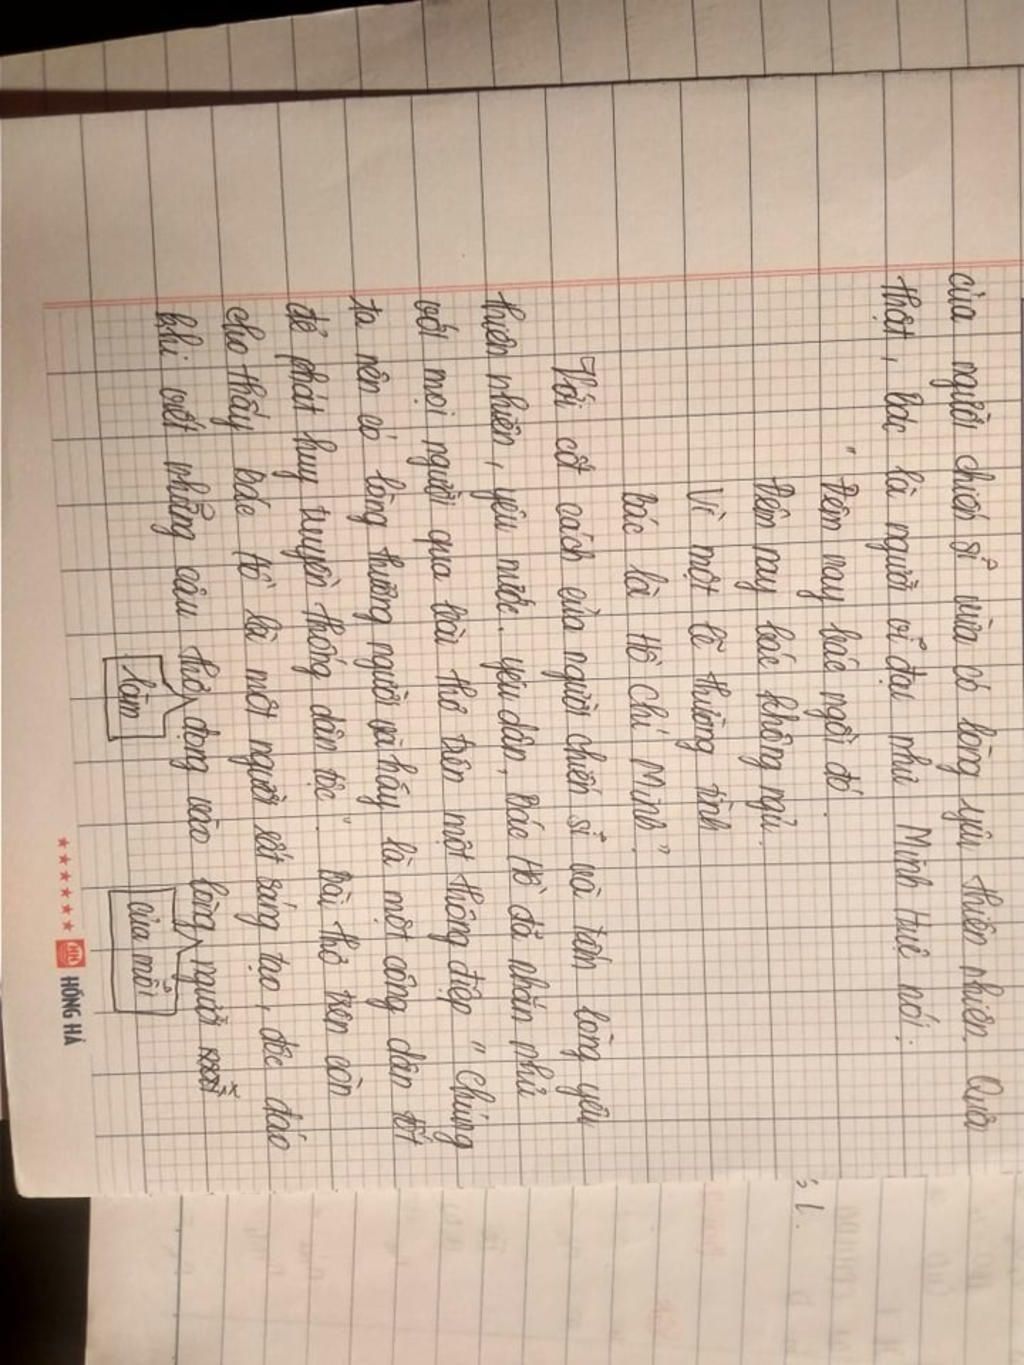 của người chiến sĩ vừa có lòng yêu thiên nhiên. Quả
thật, bác là người vĩ đại như Minh Huệ nói:
" Đêm nay bác ngồi đó.
Đêm nay bác không ngủ.
Vì một lẽ thường tình
Bác là Hồ Chí Minh".
Với cốt cách của người chiến sĩ và tấm lòng yêu
thiên nhiên, yêu nước. yêu dân, Bác Hồ đã nhắn nhủ
với mọi người qua bài thơ trên một thông điệp " Chúng
ta nên có lòng thương người và hãy là một công dân tốt
để phát huy truyền thống dân tộc". Bài thơ trên còn
cho thấy Bác Hồ là một người rất sáng tạo, độc đáo
khi viết những câu thơ đọng vào lòng người
làm
của mỗi
HỒNG HÀ